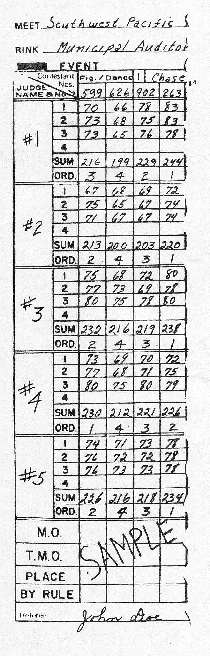 MEET Southwest Pacific
RINK Municipal Auditor
EVENT
Contestant Nos. Fig. / Dance 1 Chose
JUDGE NAME & NO. 599 626 902 263
#1
1 70 66 78 83
2 73 68 75 83
3 73 65 76 78
4
SUM 216 199 229 244
ORD. 3 4 2 1
#2
1 67 68 69 72
2 75 65 67 74
3 71 67 67 74
4
SUM 213 200 203 220
ORD. 2 4 3 1
#3
1 75 68 72 80
2 77 73 69 78
3 80 75 78 80
4
SUM 232 216 219 238
ORD. 2 4 3 1
#4
1 73 69 70 72
2 77 68 71 75
3 80 75 80 79
4
SUM 230 212 221 226
ORD. 1 4 3 2
#5
1 74 71 73 78
2 76 72 72 78
3 76 73 73 78
4
SUM 226 216 218 234
ORD. 2 4 3 1
M.O.
T.M.O.
PLACE
BY RULE
SAMPLE
John Doe